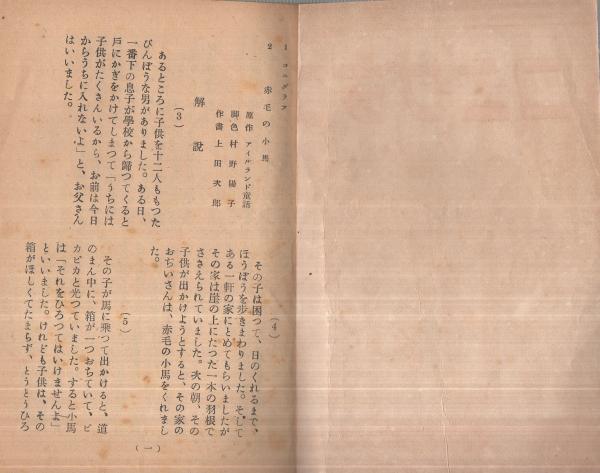 1 コニグラフ
2 赤毛の小馬
原作 アイルランド童話
脚色 村野陽子
作畫 上田次郎
解説
(3)
あるところに子供を十二人ももつた
びんぼうな男がありました。ある日、
一番下の息子が學校から歸つてくると
戸にかぎをかけてしまつて「うちには
子供がたくさんいるから、お前は今日
からうちに入れないよ」と、お父さん
はいいました。
(4)
その子は困つて、日のくれるまで、
ほうぼうを歩きまわりました。そして
ある一軒の家にとめてもらいましたが
その家は崖の上にたつた一本の羽根で
ささえられていました。次の朝、その
子供が出かけようとすると、その家の
おぢいさんは、赤毛の小馬をくれまし
た。
(5)
その子が馬に乘つて出かけると、道
のまん中に、箱が一つおちていて、ピ
カピカと光つていました。すると小馬
は「それをひろつてはいけませんよ」
といいました。けれども子供は、その
箱がほしくてたまらず、とうとうひろ
(一)